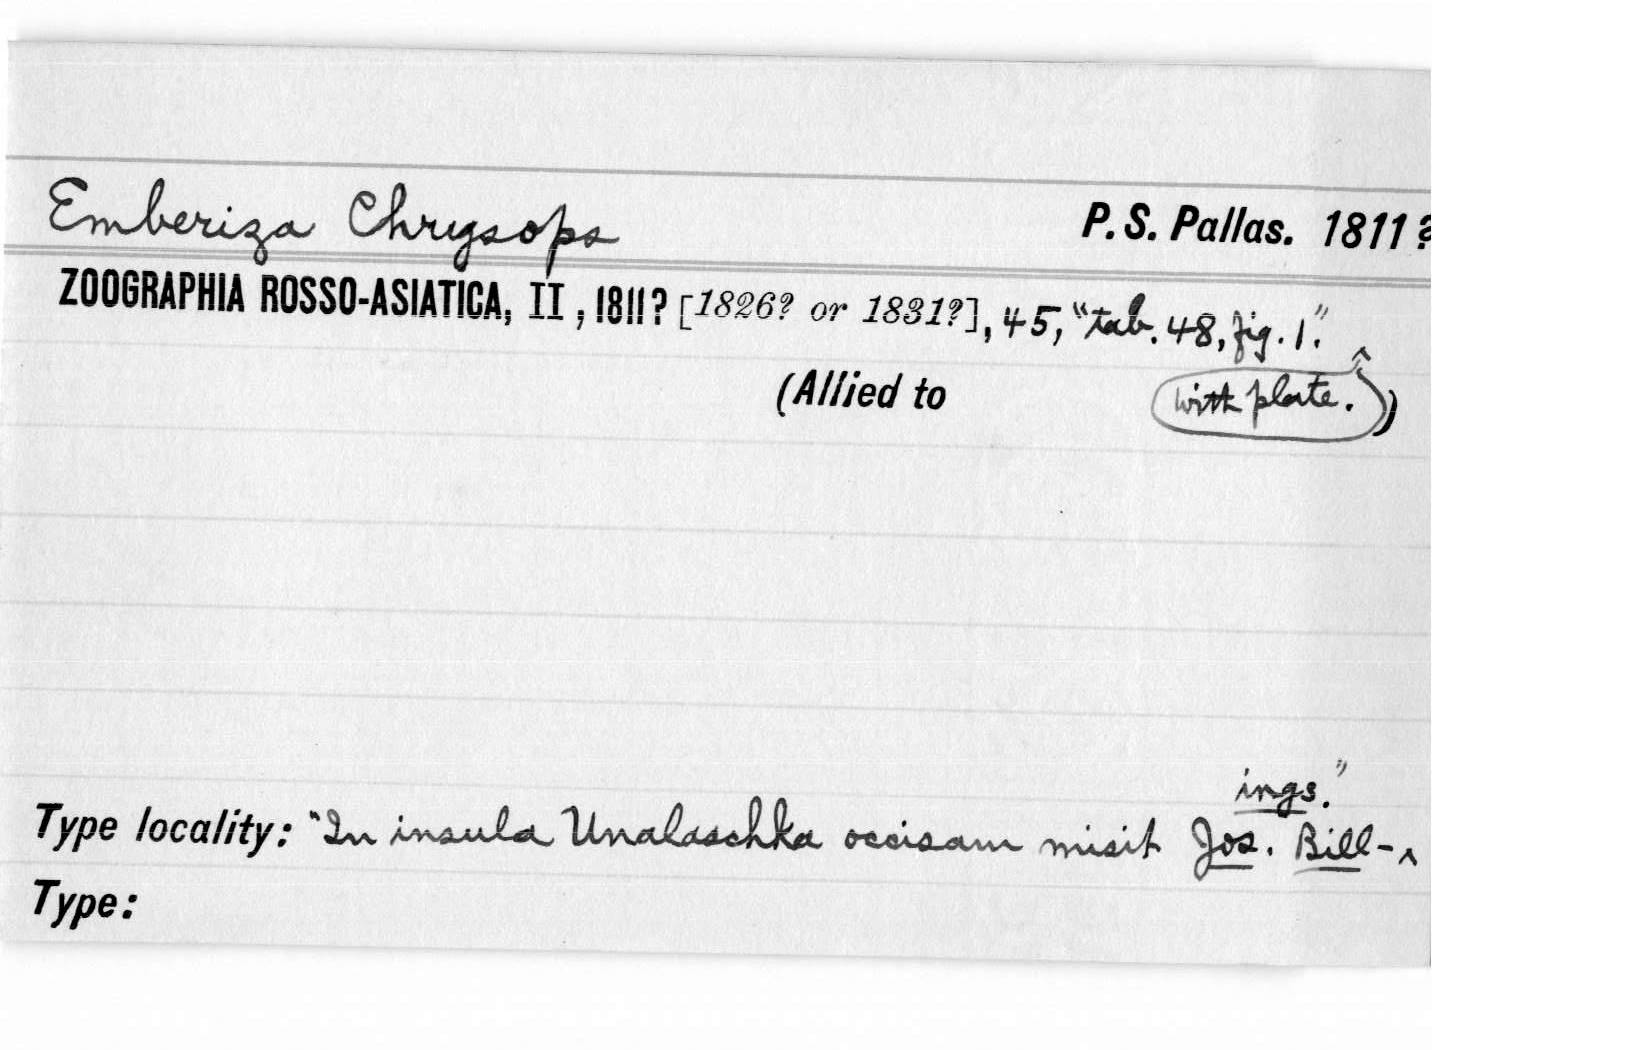 Emberiza Chrysops P. S. Pallas. 1811?
ZOOGRAPHIA ROSSO-ASIATICA, II, 1811? [1826? or 1831?], 45, "tab. 48, fig. 1."
(Allied to with plate. ^ )
ings."
Type locality: "In insula Unalaschka occisam misit Jos. Bill- ^
Type: